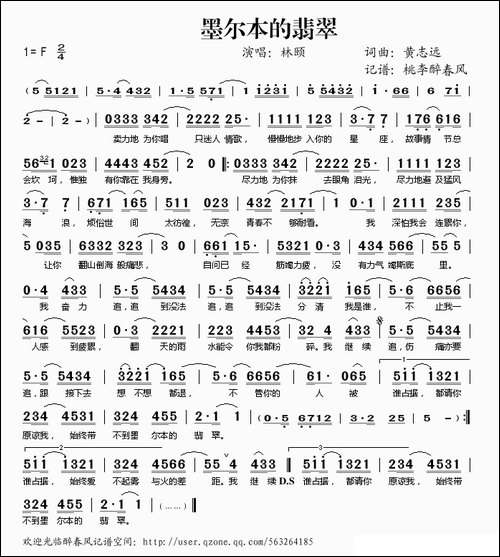 墨尔本的翡翠
1=F 2/4 演唱：林颐 词曲：黄志远
记谱：桃李醉春风
(5 5121 | 5·4 432 | 1·5 571 | 1 i23i | 5 5432 | i·66 | 67i |
2 - | 2 -) | 0333 342 | 2222 251 | 1111 123 | 3·77 | 176 616 |
卖力地 为你唱 只迷人 情歌， 慢慢地步 入你的 星 座， 故事情 节总
56 i 023 | 4443 452 | 2 0 |: 0333 342 | 2222 25· | 1111 123 |
会坎 坷， 惟独 有你靠在 我身旁。 尽力地 为你抹 去眼角 泪光， 尽力地遮 及猛风
3·7 7 | 671 165 | 511 023 | 432 2171 | 2· 3 | 443 334 |
海 浪， 烦俗世 间 太彷徨， 无奈 青春不 够耐看。 我 深怕我会 连累你，
5 035 | 6332 343 | 3 0 | 661 15· | 0321 321 | 434 566 | 55 5 |
让你 翻山倒海 般痛悲， 自问已 经 筋竭力疲， 没 有力气 竭斯底 里。
0·4 433 | 5·5 5434 | 5·5 5434 | 3221 165 | 5·6 6656 |
我 奋力 追，追 到没法 追，追 到没法 分 清 我是谁， 不 止我一
616 5523 | 0·3 2221 | 223 4453 | 3·4 433 | 5·5 5434 |
人感 到疲累， 翻 天的雨 水能令 你我都粉 碎。我 继续 追，伤 痛亦要
5·5 5434 | 3221 165 | 5·6 6656 | 61·065 | 5ii 1321 |
追，跟 接下去 想 不想 都退， 不 管你的 人 被 谁占据， 都请你
234 4531 | 2·1 1 | (0·5 6712 | 3·2 25 | 5 -) :|
原谅我， 始终带 不到墨 尔本的 翡 翠。
5ii 1321 | 234 4531 | 234 455 | 55 4 433 | 5ii 1321 | 234 4531 |
谁占据， 始终爱 不起雾 与火的差 距。我 继续 D.S 谁占据， 都请你 原谅我， 始终带
324 455 | 2·1 1 | (……) ||
不到墨 尔本的 翡 翠。
欢迎光临醉春风记谱空间：http://user.qzone.qq.com/563264185